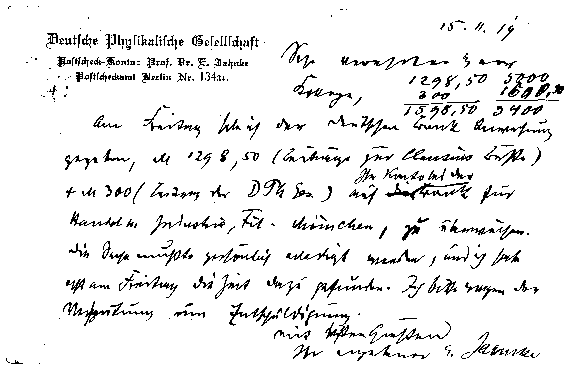 15. 11. 19
Deutsche Physikalische Gesellschaft
Postscheck-Konto: Prof. Dr. E. Jahnke
Postscheckamt Berlin Nr. 134
Sehr verehrter Herr
Kollege,
1298,50 5000
300
1598,50 3400
Am Freitag habe ich der deutschen Bank Anweisung
gegeben, M 1298,50 (Beiträge zur Clausius Büste)
Ihr Konto bei der
+ M 300 (Beitrag der D Ph Ges.) auf für
Handel u. Industrie, Fil. München, zu überweisen.
Die Sache mußte persönlich erledigt werden, und ich habe
erst am Freitag die Zeit dazu gefunden. Ich bitte wegen der
Verspätung um Entschuldigung.
Mit besten Grüßen
Ihr ergebener E. Jahnke